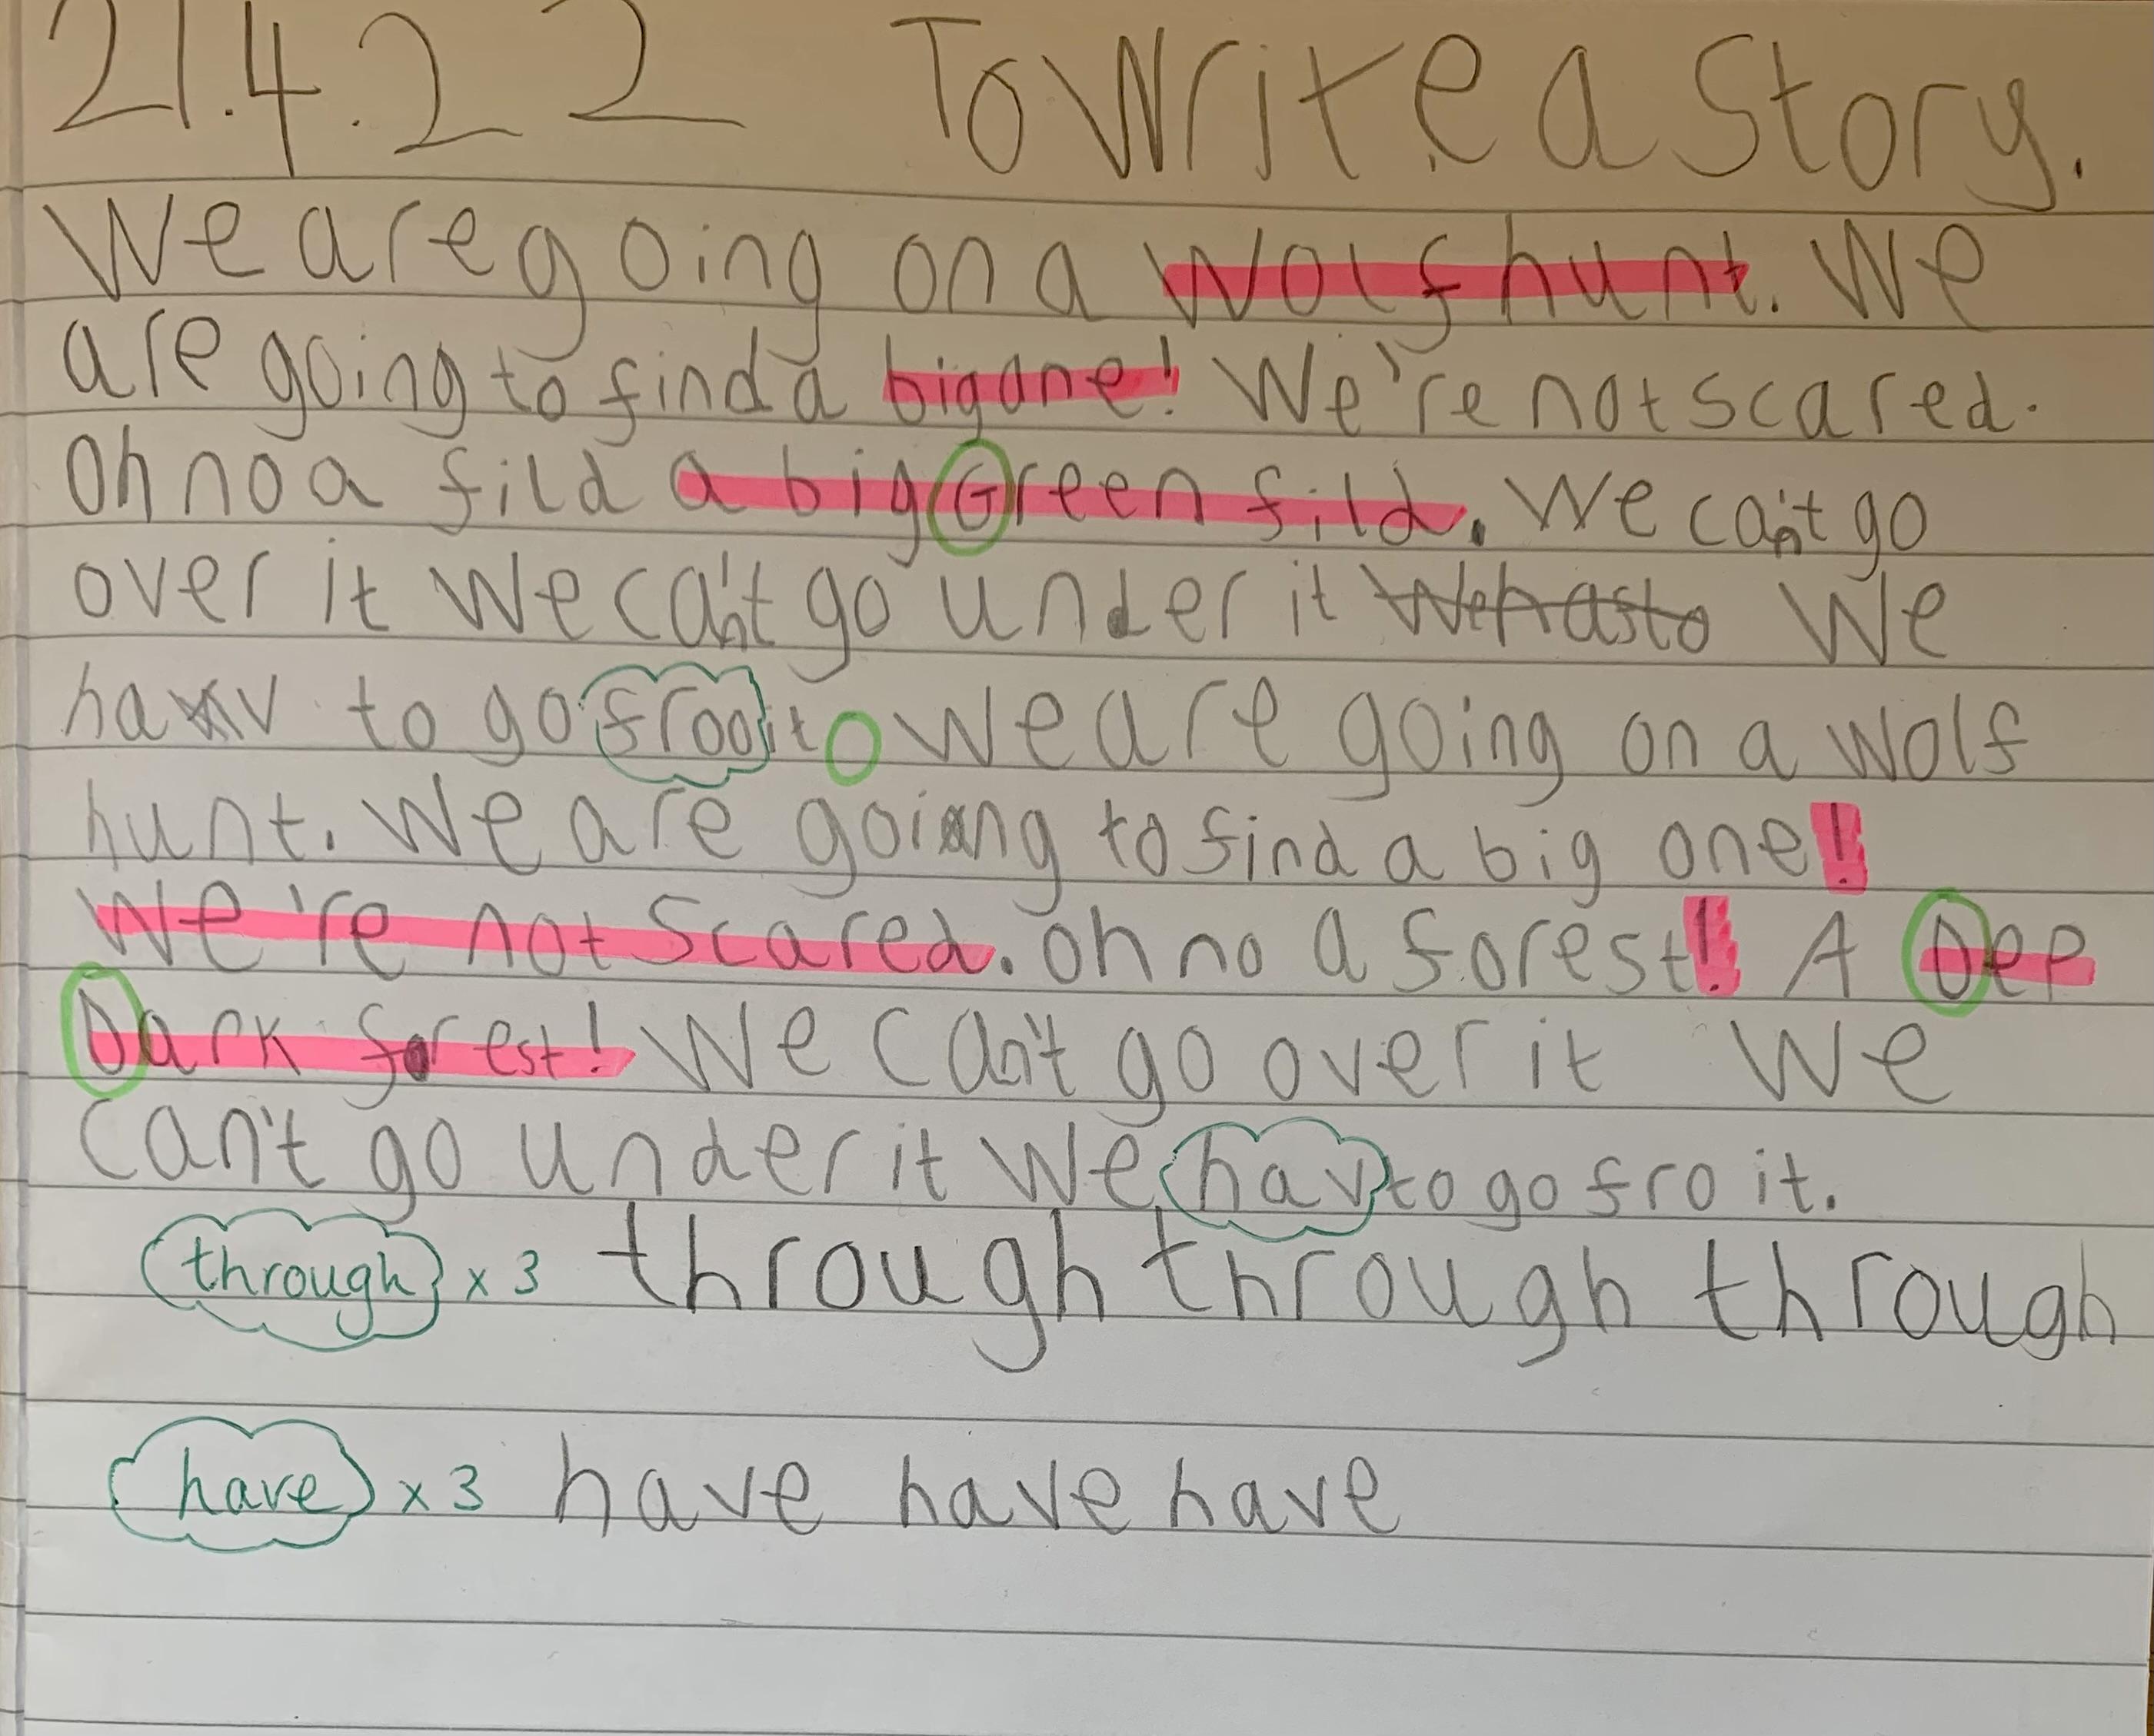 21.4.22 To Write a Story.
We are going on a wolf hunt. We
are going to find a big one! We're not scared.
Oh no a fild a big Green fild. We can't go
over it We can't go under it We has to We
hav to go froo it We are going on a wolf
hunt. We are going to find a big one!
We're not scared. Oh no a forest! A Dep
Dark forest! We can't go over it We
can't go under it We hav to go fro it.
through x 3 through through through
have x 3 have have have